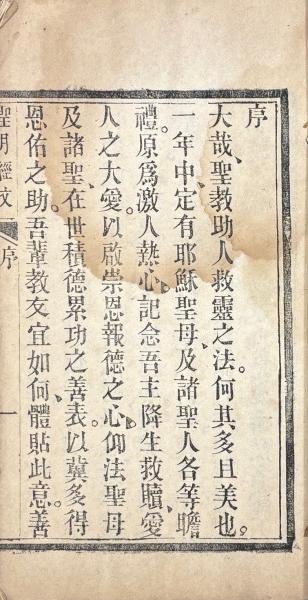 序
大哉、聖教助人救靈之法。何其多且美也。
一年中、定有耶穌聖母、及諸聖人各等瞻
禮。原爲激人熱心、記念吾主降生救贖、愛
人之大愛。以啟崇恩報德之心。仰法聖母
及諸聖、在世積德累功之善表。以冀多得
恩佑之助。吾輩教友宜如何、體貼此意、善
聖月經文 序 一